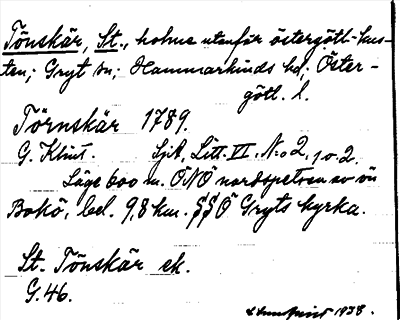 Tönskär, St., holme utanför östergötl. kus-
ten; Gryt sn; Hammarkinds hd; Öster-
götl. l.
Törnskär 1789.
G. Klint. Sjök, Litt. VI, No 2, 1 o. 2.
Läge 600 m. ONO nordspetsen av ön
Bokö, bel. 9,8 km. SSO Gryts kyrka.
St. Tönskär ek.
G. 46.
1938.